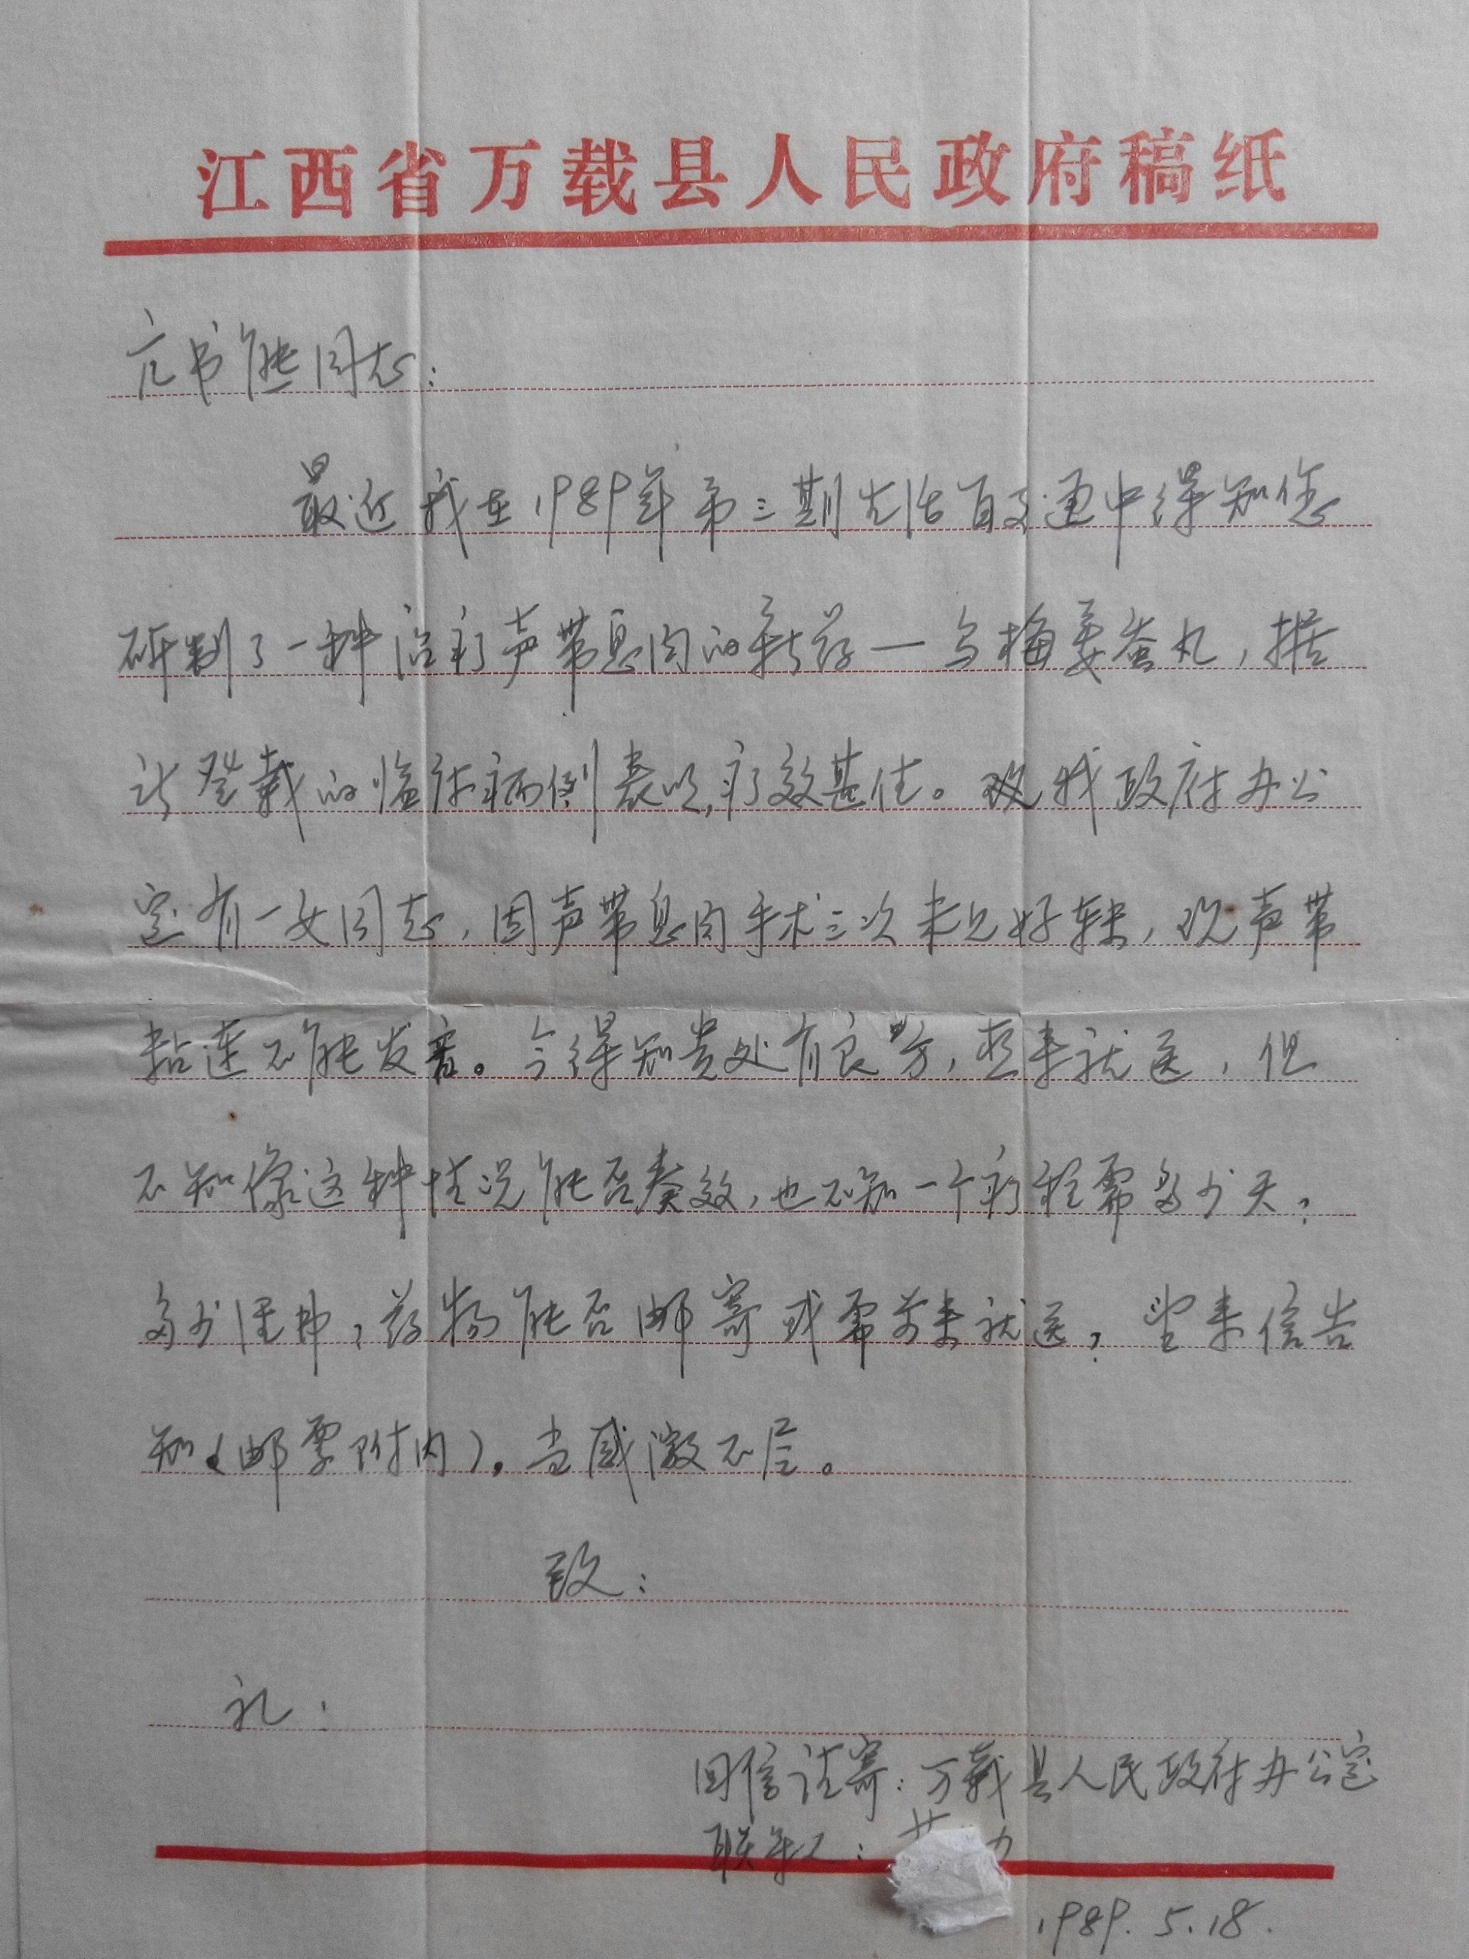 江西省万载县人民政府稿纸
亢书能同志:
最近我在1989年第三期生活百事通中得知您
研制了一种治疗声带息肉的新药—乌梅姜蚕丸,据
所登载的临床病例表明,疗效甚佳。现我政府办公
室有一女同志,因声带息肉手术三次未见好转,现声带
粘连不能发音。今得知贵处有良方,想来就医,但
不知像这种情况能否奏效,也不知一个疗程需多少天?
多少经费?药物能否邮寄或需前来就医?望来信告
知(邮票附内)。当感激不尽。
致:
礼:
回信请寄:万载县人民政府办公室
联系人:
1989.5.18.